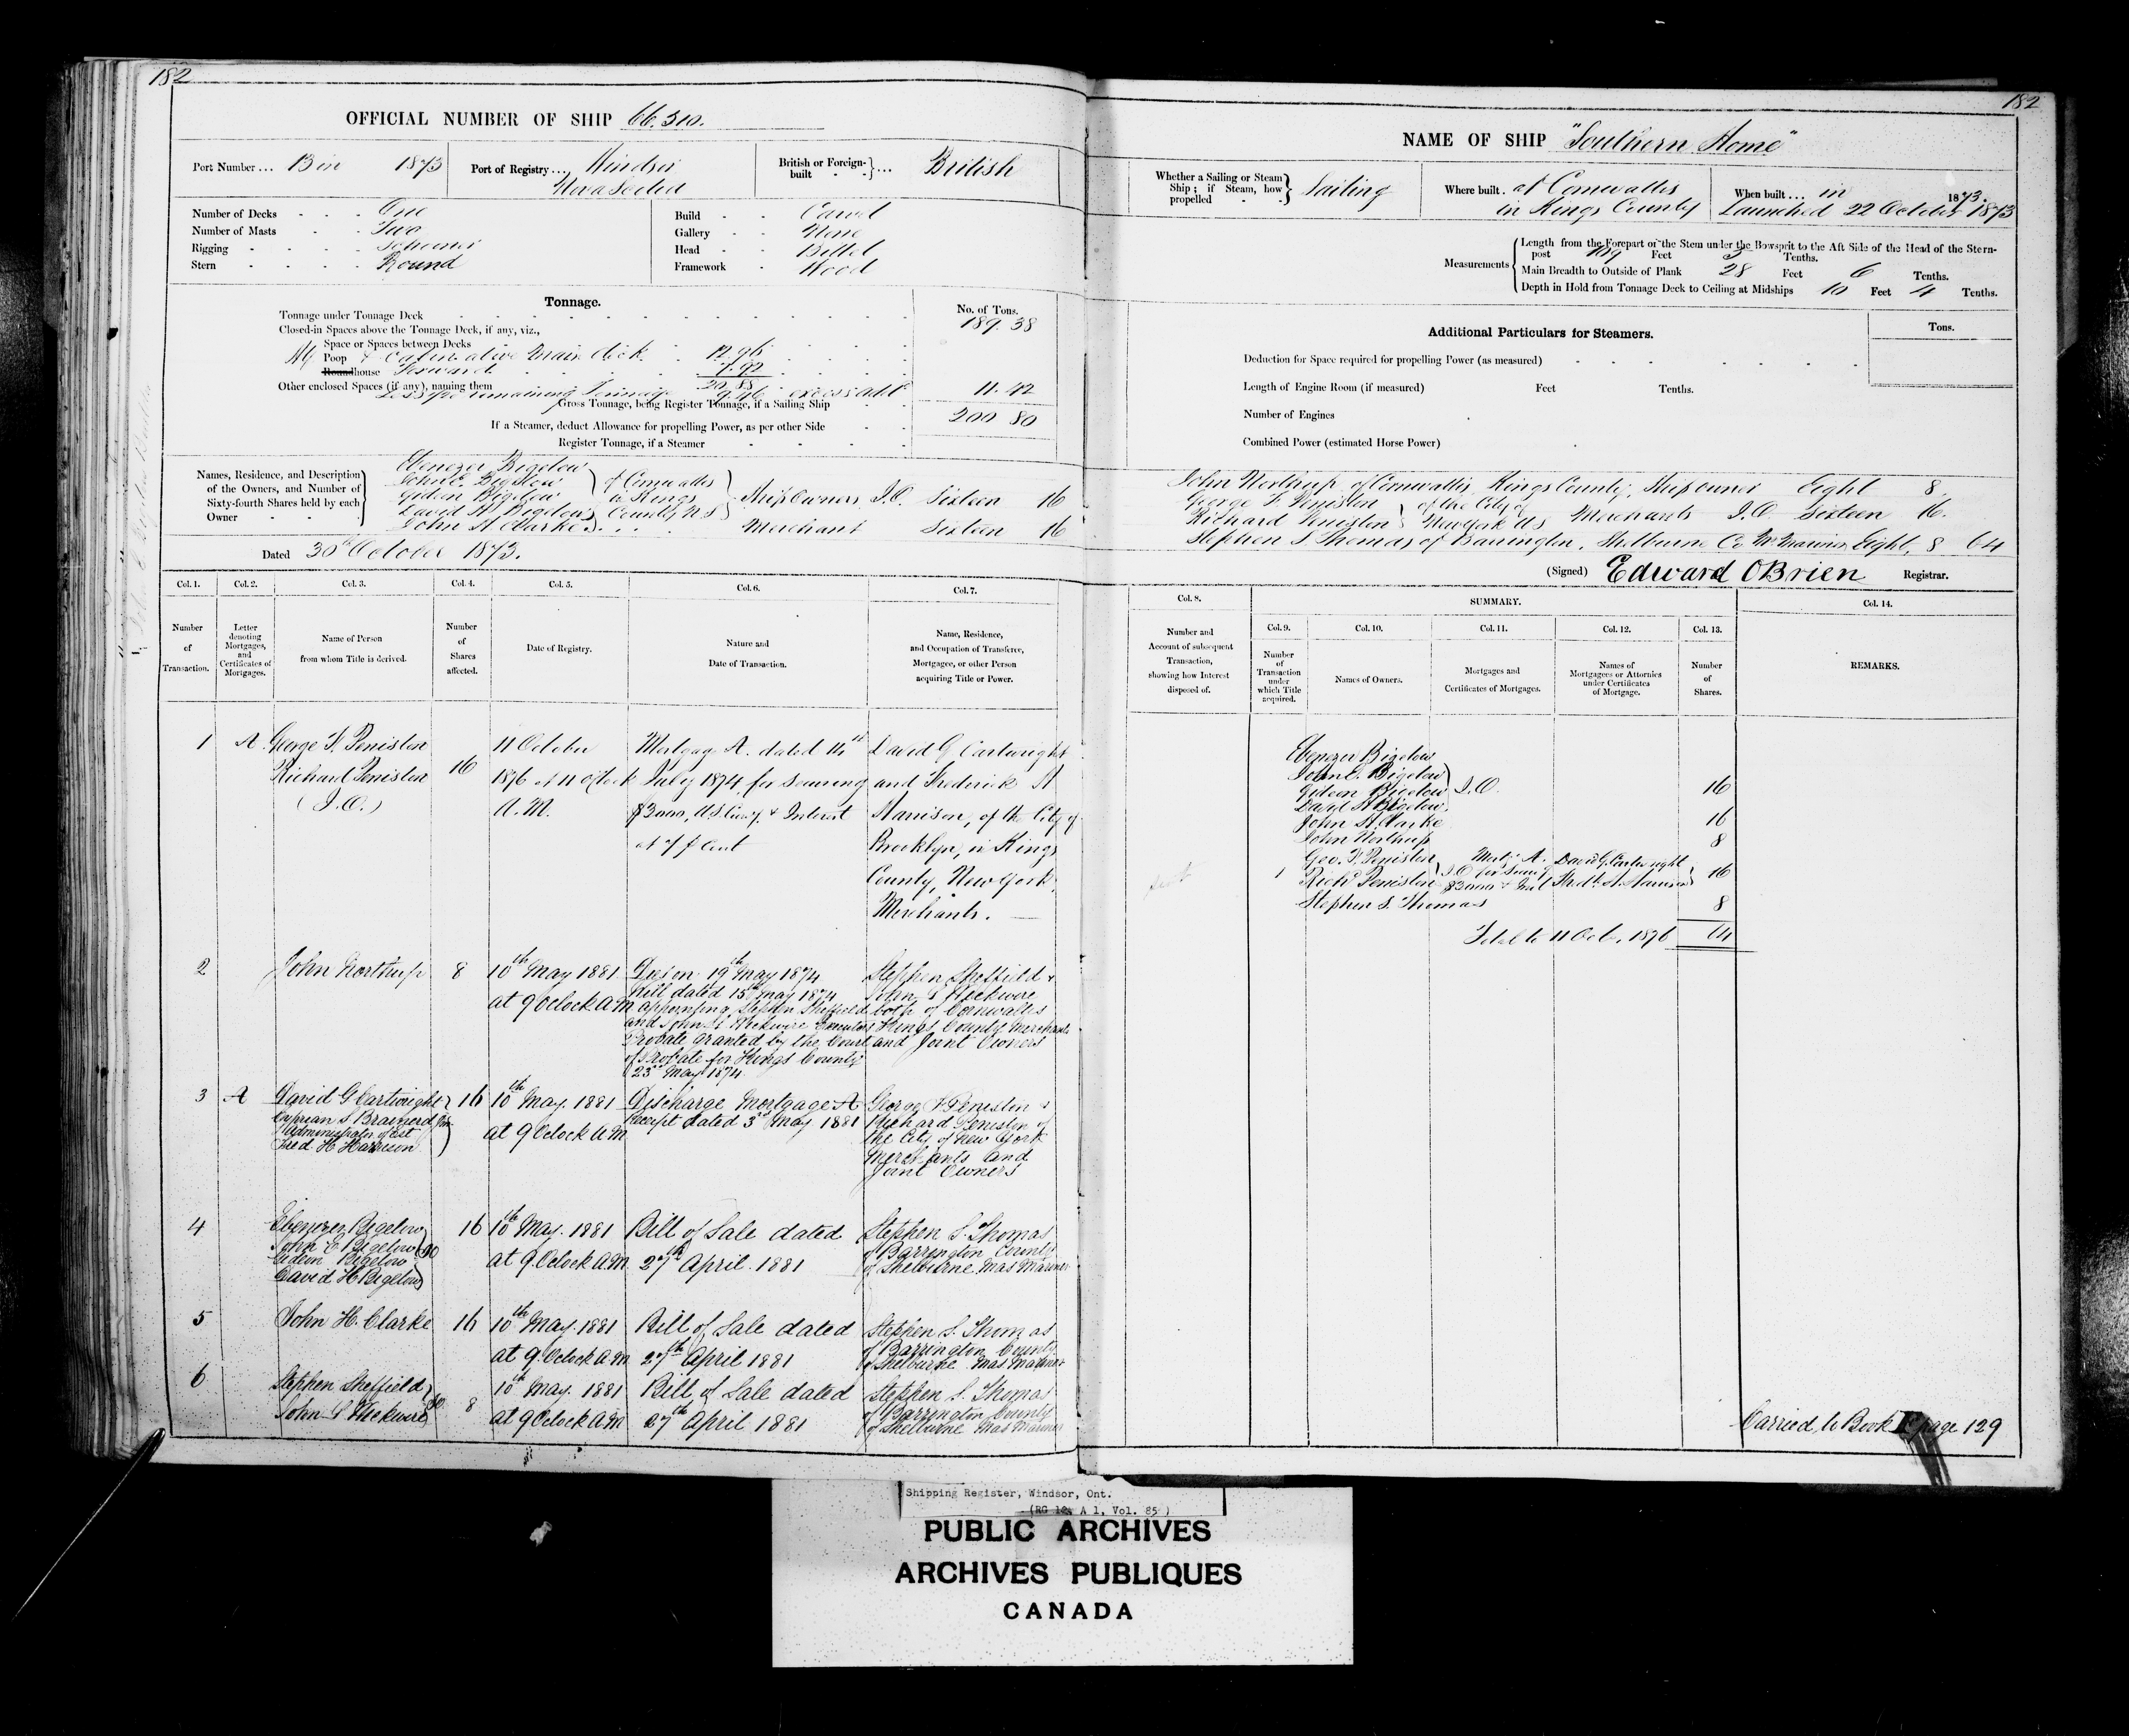 182
OFFICIAL NUMBER OF SHIP 66.310.
Port Number ... 1873
Port of Registry ... Windsor
Nova Scotia
British or Foreign-built ... British
Number of Decks - - - One
Number of Masts - - Two
Rigging - - - - Schooner
Stern - - - - Round
Build - - Carvel
Gallery - - None
Head - - Billet
Framework - Wood
Tonnage.
No. of Tons.
Tonnage under Tonnage Deck 189.38
Closed-in Spaces above the Tonnage Deck, if any, viz.,
Space or Spaces between Decks
Poop & Cabin above main deck 12.96
house Forward 7.92
20.88
Other enclosed Spaces (if any), naming them
remaining Tonnage 9.46 excess add 11.42
Gross Tonnage, being Register Tonnage, if a Sailing Ship 200 80
If a Steamer, deduct Allowance for propelling Power, as per other Side
Register Tonnage, if a Steamer
Names, Residence, and Description of the Owners, and Number of Sixty-fourth Shares held by each Owner
Ebenezer Bigelow
John E. Bigelow
Gideon Bigelow
David H. Bigelow
of Cornwallis
in Kings
County NS
Ship Owners J.O. Sixteen 16
John H. Clarke Merchant Sixteen 16
Dated 30th October 1873.
Col. 1. Col. 2. Col. 3. Col. 4. Col. 5. Col. 6. Col. 7.
Number of Transaction.
Letter denoting Mortgages, and Certificates of Mortgages.
Name of Person from whom Title is derived.
Number of Shares affected.
Date of Registry.
Nature and Date of Transaction.
Name, Residence, and Occupation of Transferee, Mortgagee, or other Person acquiring Title or Power.
1 A George F. Peniston
Richard Peniston
(J.O.)
16
11 October
1876 at 11 O'Clock
A.M.
Mortgage A. dated 14th
July 1874, for securing
$3000, US Curry. & Interest
at 7 p Cent
David G Cartwright
and Frederick H
Harrison, of the City of
Brooklyn, in Kings
County, New York,
Merchants.
2 John Northup 8
10th May 1881
at 9 Oclock a.m
19th May 1874
Will dated 15th May 1874
appointing Stephen Sheffield
and John Heckwire Executors
Probate granted by the Court
of Probate for Kings County
23rd May 1874
Stephen Sheffield &
John Heckwire
both of Cornwallis
Kings County Merchants
and Joint Owners
3 A David G Cartwright
Cyprian S Brainerd Jun
Administrator of Est
Fred. H Harrison
16
10th May. 1881
at 9 Oclock a.m
Discharge Mortgage A
Receipt dated 3rd May 1881
George F Peniston &
Richard Peniston of
the City of New York
Merchants and
Joint Owners
4 Ebenezer Bigelow
John E Bigelow
Gideon Bigelow
David H Bigelow
JO
16
10th May. 1881
at 9. Oclock a.m.
Bill of Sale dated
27th April. 1881
Stephen S. Thomas
of Barrington County
of Shelburne Mas Mariner
5 John H. Clarke 16
10th May. 1881
at 9. Oclock a.m
Bill of Sale dated
27th April 1881
Stephen S. Thomas
of Barrington County
of Shelburne Mas Mariner
6 Stephen Sheffield
John Heckwire
JO 8
10th May. 1881
at 9 Oclock a.m
Bill of Sale dated
27th April 1881
Stephen S. Thomas
of Barrington County
of Shelburne Mas Mariner
182
NAME OF SHIP "Southern Home"
Whether a Sailing or Steam Ship; if Steam, how propelled Sailing
Where built . at Cornwallis
in Kings County
When built ... in 1873.
Launched 22 October 1873
Measurements
Length from the Forepart of the Stem under the Bowsprit to the Aft Side of the Head of the Stern-
post 109 Feet Tenths.
Main Breadth to Outside of Plank 28 Feet 6 Tenths.
Depth in Hold from Tonnage Deck to Ceiling at Midships 10 Feet 4 Tenths.
Additional Particulars for Steamers.
Tons.
Deduction for Space required for propelling Power (as measured)
Length of Engine Room (if measured) Feet Tenths.
Number of Engines
Combined Power (estimated Horse Power)
John Northup of Cornwallis Kings County, Ship owner Eight 8.
George F. Peniston
Richard Peniston
of the City of
New York US
Merchants J.O Sixteen 16.
Stephen S Thomas of Barrington, Shelburne Co Mr Mariner, Eight, 8 64
(Signed) Edward OBrien Registrar.
Col. 8. SUMMARY. Col. 14.
Col. 9. Col. 10. Col. 11. Col. 12. Col. 13.
Number and Account of subsequent Transaction, showing how Interest disposed of.
Number of Transaction under which Title acquired.
Names of Owners.
Mortgages and Certificates of Mortgages.
Names of Mortgagees or Attornies under Certificates of Mortgage.
Number of Shares.
REMARKS.
Ebenezer Bigelow
John E. Bigelow
Gideon Bigelow J.O. 16
David H Bigelow
John H. Clarke 16
John Northup 8
1 Geo. F. Peniston
Richd Peniston J.O
Mortge A.
for Securg
$3000 & Int
David G. Cartwright
Fredk. H. Harrison
16
Stephen S. Thomas 8
Total to 11 Oct. 1876 64
Carried to Book page 129
Shipping Register, Windsor, Ont.
(RG 12, A 1, Vol. 85)
PUBLIC ARCHIVES
ARCHIVES PUBLIQUES
CANADA